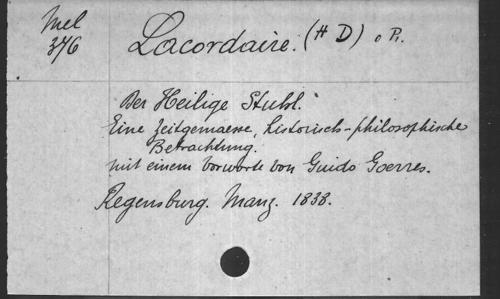 Mel
376
Lacordaire. (H D) o Pr.
Der Heilige Stuhl.
Eine zeitgemaesse, historisch-philosophische
Betrachtung.
mit einem Vorworte von Guido Goerres.
Regensburg. Manz. 1838.